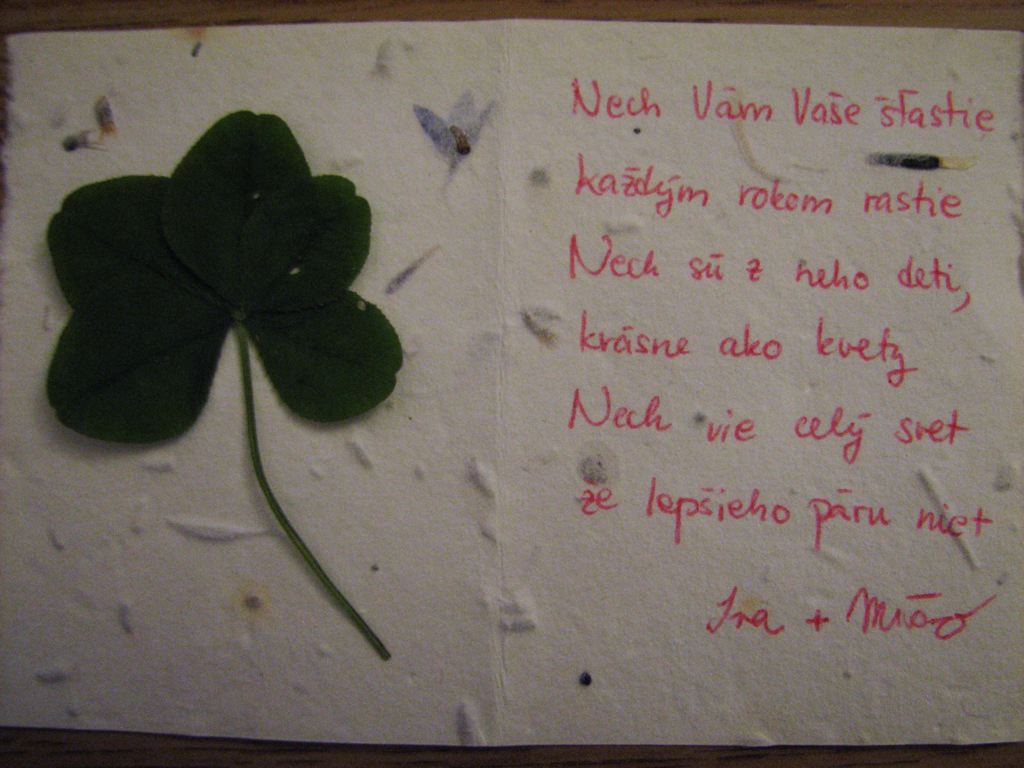 Nech Vám Vaše šťastie
každým rokom rastie
Nech sú z neho deti,
krásne ako kvety
Nech vie celý svet
že lepšieho páru niet
Ira + Mišo